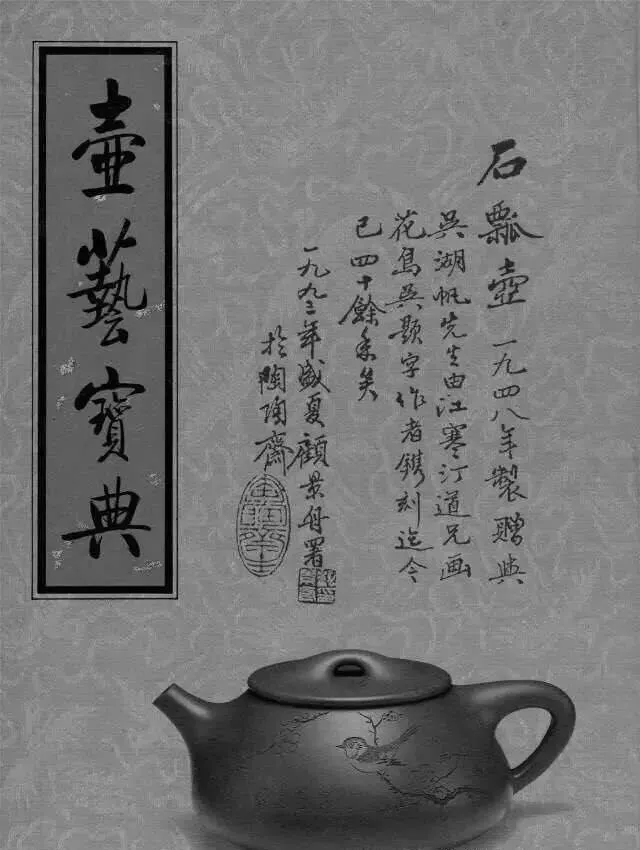 石瓢壺 一九四八年製贈與
吳湖帆先生由江寒汀道兄画
花鳥吳題字作者鐫刻迄今
已四十餘秊矣
一九九二年盛夏顧景舟署
於陶陶齋
壺藝寶典